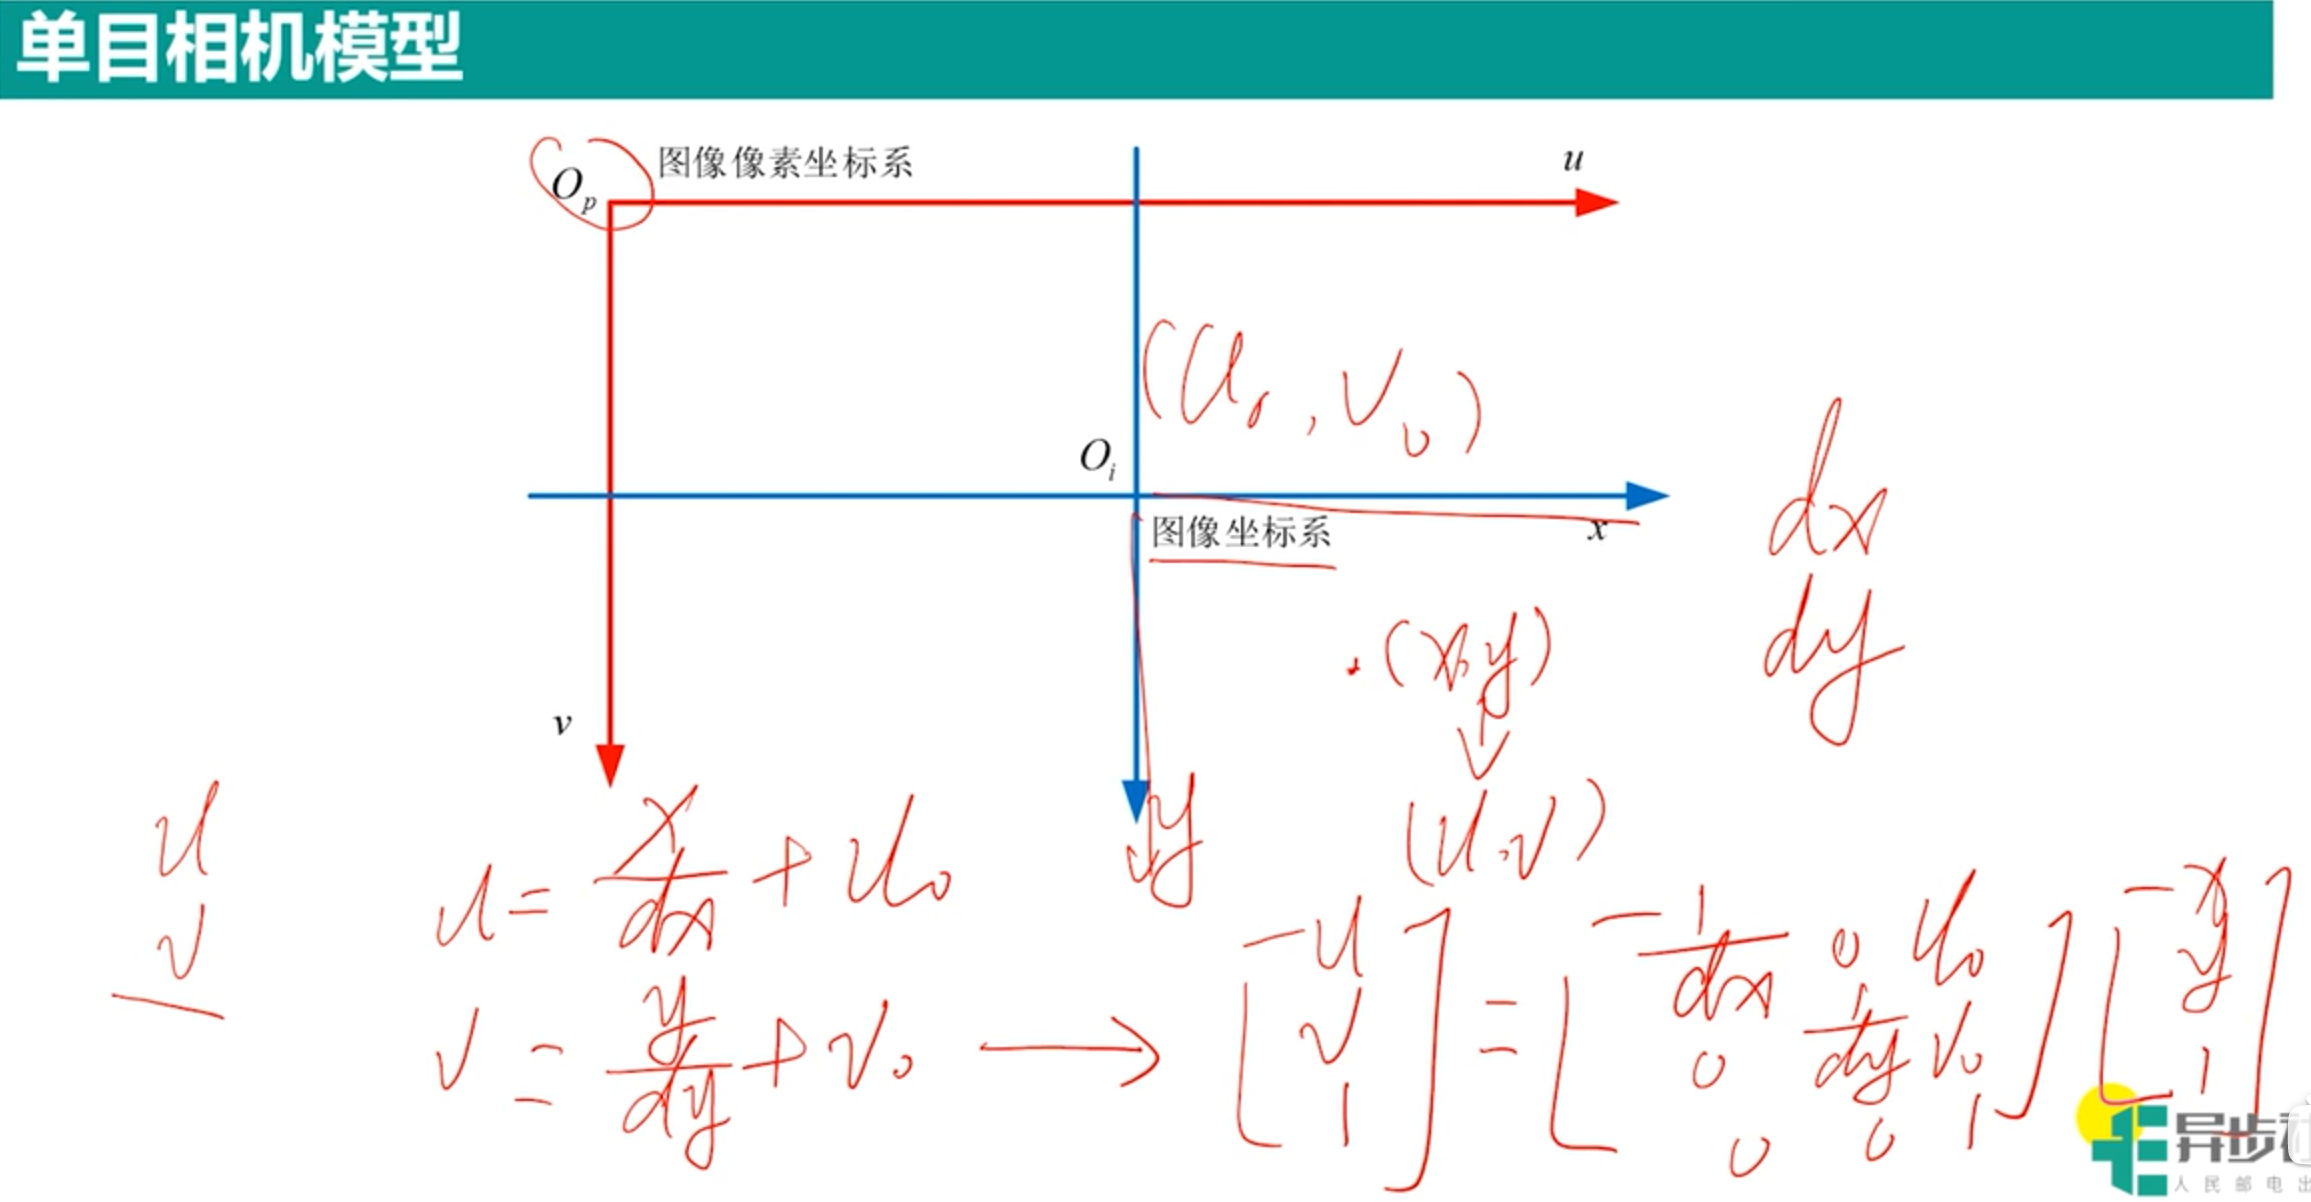 单目相机模型
O_p 图像像素坐标系 u
(u₀, v₀)
O_i
图像坐标系 x
dx
dy
(x, y)
v
(u, v)
y
u
v
u = x/dx + u₀
v = y/dy + v₀ → [u v 1] = [1/dx 0 u₀ 0 1/dy v₀ 0 0 1] [x y 1]
异步
人民邮电出